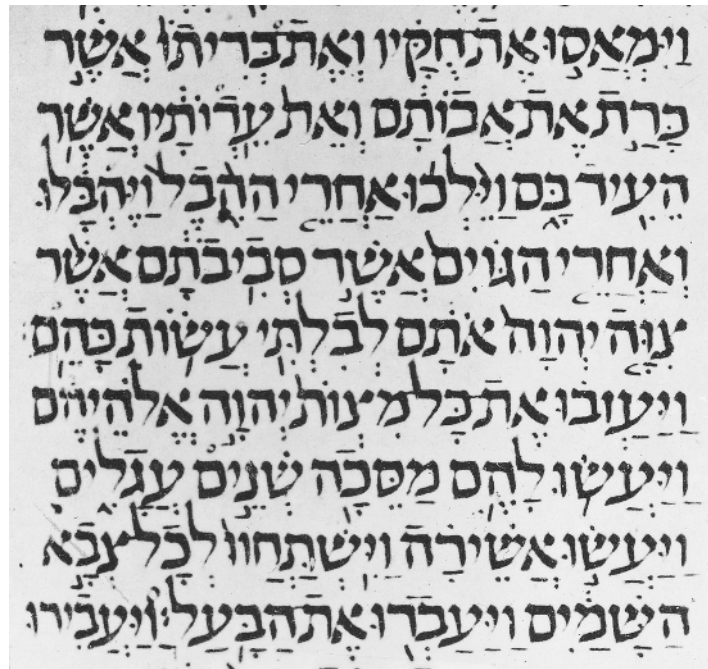 וַיִּמְאֲסוּ אֶת חֻקָּיו וְאֶת בְּרִיתוֹ אֲשֶׁר
כָּרַת אֶת אֲבוֹתָם וְאֵת עֵדְוֹתָיו אֲשֶׁר
הֵעִיד בָּם וַיֵּלְכוּ אַחֲרֵי הַהֶבֶל וַיֶּהְבָּלוּ
וְאַחֲרֵי הַגּוֹיִם אֲשֶׁר סְבִיבֹתָם אֲשֶׁר
צִוָּה יְהוָה אֹתָם לְבִלְתִּי עֲשׂוֹת כָּהֶם
וַיַּעַזְבוּ אֶת כָּל מִצְוֹת יְהוָה אֱלֹהֵיהֶם
וַיַּעֲשׂוּ לָהֶם מַסֵּכָה שְׁנַיִם עֲגָלִים
וַיַּעֲשׂוּ אֲשֵׁירָה וַיִּשְׁתַּחֲווּ לְכָל צְבָא
הַשָּׁמַיִם וַיַּעַבְדוּ אֶת הַבָּעַל וַיַּעֲבִירוּ